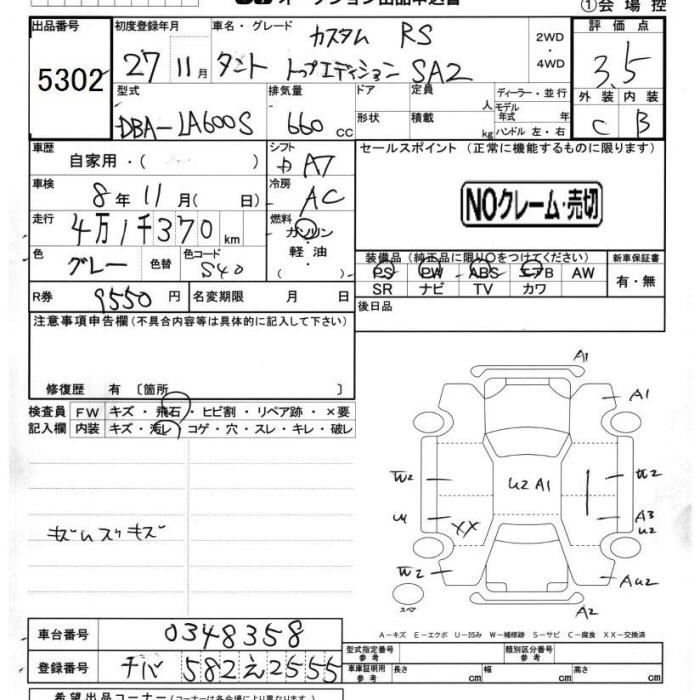 オークション出品申込書
①会場控
出品番号 初度登録年月 車名・グレード カスタム RS 2WD・4WD 評価点
5302 27 11月 タント トップエディション SA2 3.5
型式 排気量 ドア 定員 人 ディーラー・並行 外装 内装
DBA-LA600S 660 cc 形状 積載 kg モデル年式 年式 ハンドル 左・右 C B
車歴 自家用・( ) シフト フ AT セールスポイント (正常に機能するものに限ります)
車検 8年11月( 日) 冷房 AC NOクレーム・売切
走行 4万1千370km 燃料 ガソリン 軽・油
色 グレー 色替 色コード S40
装備品 (純正品に限り○をつけてください) 新車保証書
PS PW ABS エアB AW 有・無
SR ナビ TV カワ
R券 9550円 名変期限 月 日 後日品
注意事項申告欄(不具合内容等は具体的に記入して下さい)
修復歴 有 〔箇所 〕
検査員 FW キズ・飛石・ヒビ割・リペア跡・×要
記入欄 内装 キズ・汚レ・コゲ・穴・スレ・キレ・破レ
A1
A1
W2 U2 A1 W2
U XX A3 U2
W2 AU2
スペア
A2
A-キズ E-エクボ U-凹み W-補修跡 S-サビ C-腐食 XX-交換済
車台番号 0348358
登録番号 チバ 582 え 2555
型式指定番号 参考 類別区分番号 参考
車庫証明用 参考 長さ cm 幅 cm 高さ cm
希望出品コーナー(コーナーは各会場により異なります。)